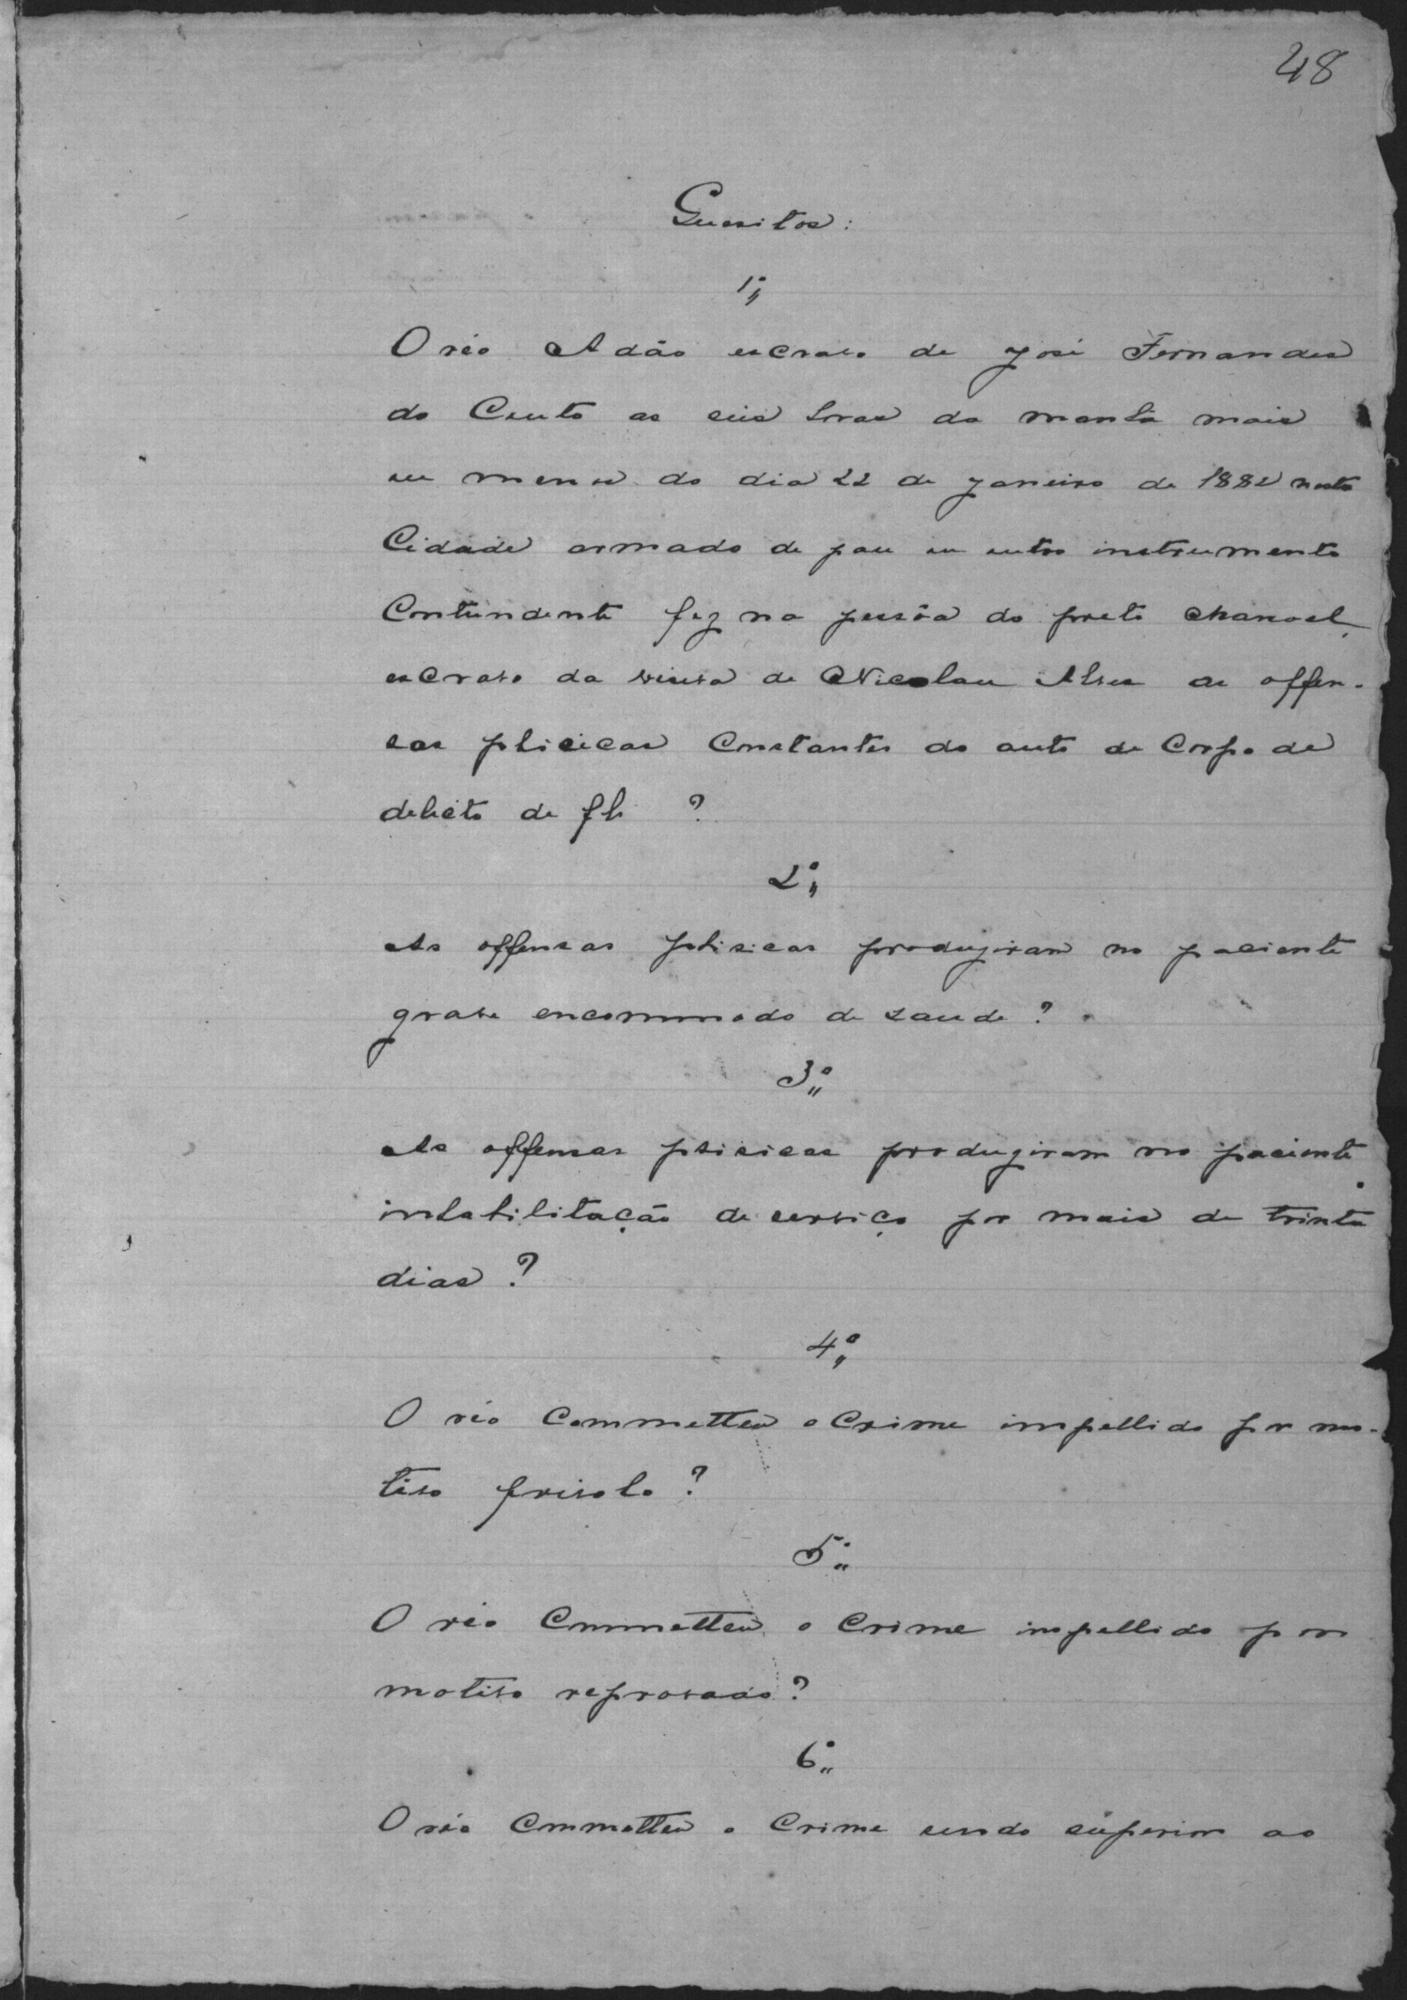 48
Quesitos:
1º
O réo Adão escravo de José Fernandes
do Couto as seis horas da manhã mais
ou menos do dia 22 de janeiro de 1882 nesta
Cidade armado de pau ou outro instrumento
Contundente fez na pessôa do preto Manoel,
escravo da viuva de Nicolau Alves as offen-
sas phisicas Constantes do auto de Corpo de
delicto de fh ?
2º
As offensas phisicas produziram no paciente
grave encommodo de saude ?
3º
As offensas phisicas produziram no paciente
inhabilitação de serviço por mais de trinta
dias ?
4º
O réo Commetteu o Crime impellido por mo-
tivo frivolo ?
5º
O réo Commetteu o Crime impellido por
motivo reprovado ?
6º
O réo Commetteu o Crime sendo superior ao